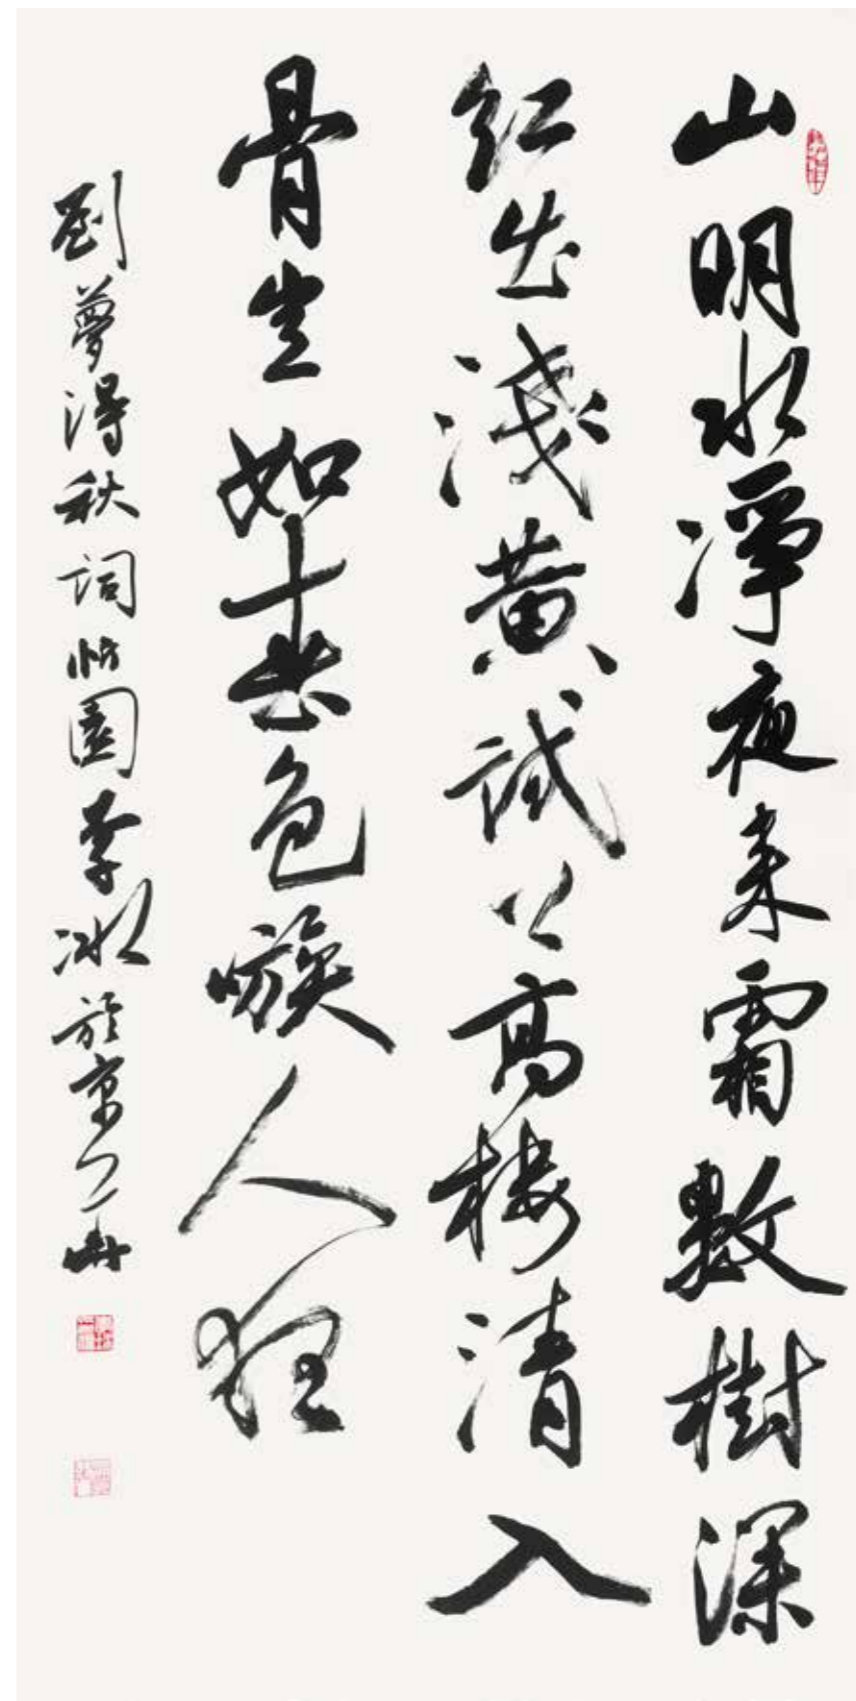 山明水淨夜来霜數樹深
紅出淺黄試上高樓清入
骨豈如春色嗾人狂
劉夢得秋詞園李冰於京